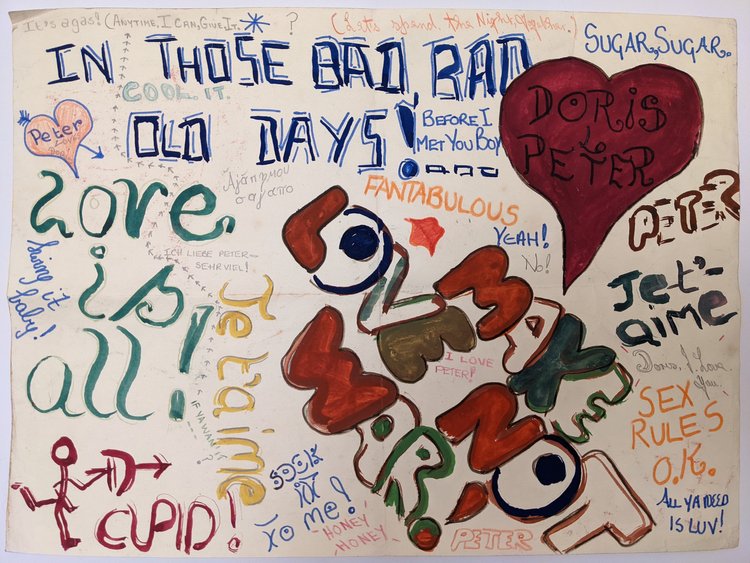 It's a gas! (Anytime, I Can, Give It. * ?
(Let's spend the Night Together.)
SUGAR, SUGAR.
IN THOSE BAD, BAD
OLD DAYS!....
COOL. IT.
BEFORE I
MET YOU BOY
DORIS
L
PETER
Peter
Love
Αγάπημου
σαγαπο
FANTABULOUS
YEAH!
No!
PETER
Love
is
all!
Swing it
baby!
ICH LIEBE PETER-
SEHR VIEL!
Je t'aime
Je t'-
aime
MAKE
LOVE
NOT
WAR!
I LOVE
PETER!
Doris, I Love
You
SEX
RULES
O.K.
ALL YA NEED
IS LUV!
IF YA WANT IT
CUPID!
SOCK
IT
To me!
HONEY
HONEY
PETER